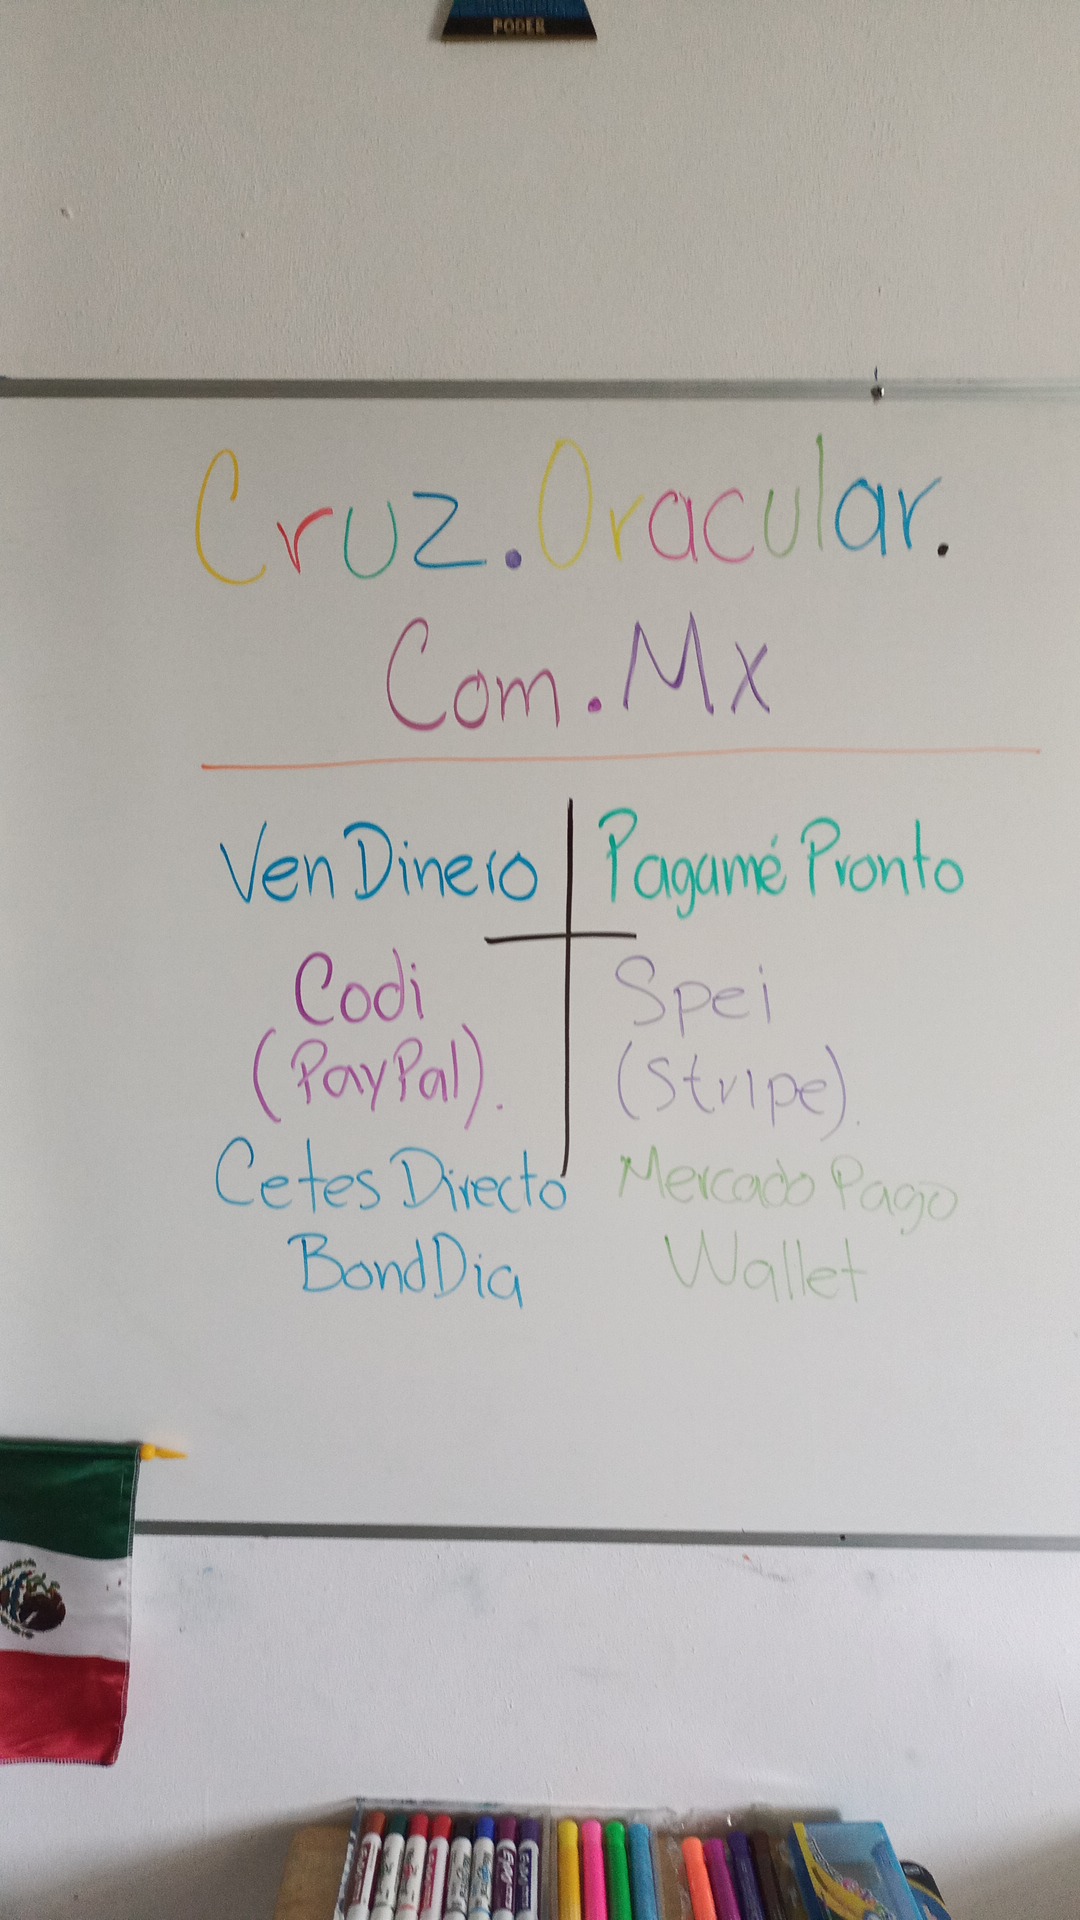 PODER
Cruz.Oracular.
Com.Mx
Ven Dinero
Pagamé Pronto
Codi
(PayPal).
Spei
(Stripe).
Cetes Directo
BondDia
Mercado Pago
Wallet
EXPO